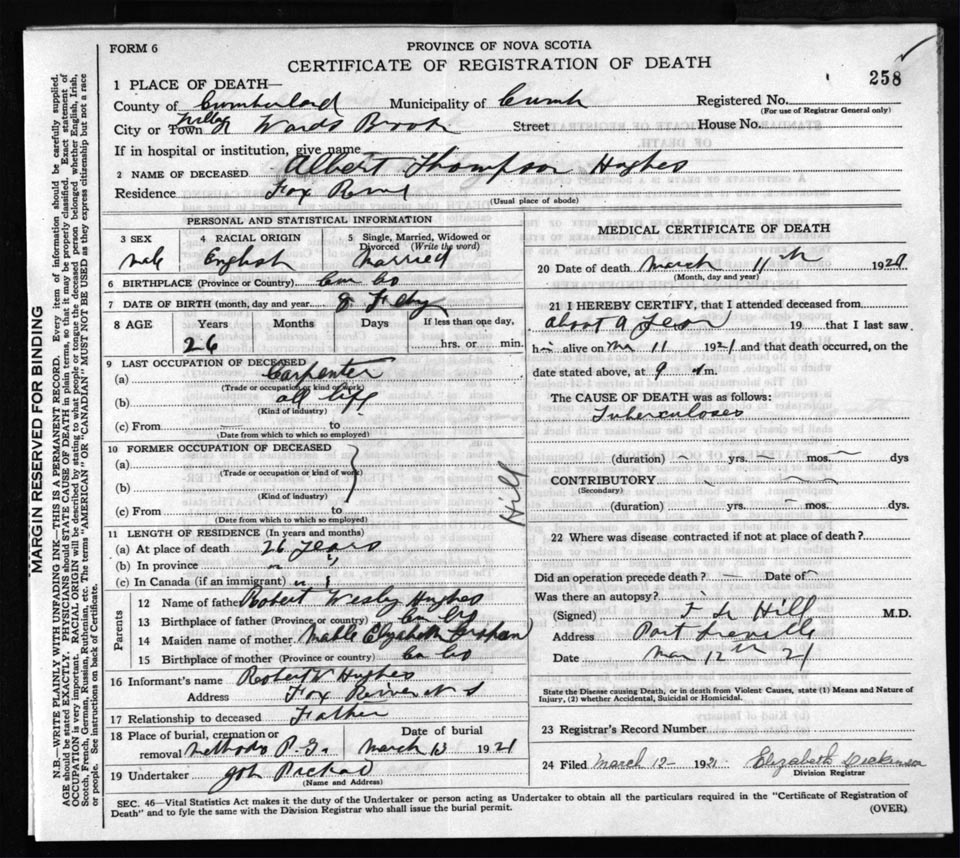 FORM 6
PROVINCE OF NOVA SCOTIA
CERTIFICATE OF REGISTRATION OF DEATH
258
1 PLACE OF DEATH—
County of Cumberland Municipality of Cumb Registered No.
(For use of Registrar General only)
City or Town Wards Brook Street House No.
If in hospital or institution, give name
2 NAME OF DECEASED Albert Thompson Hughes
Residence Fox River
(Usual place of abode)
PERSONAL AND STATISTICAL INFORMATION
3 SEX 4 RACIAL ORIGIN 5 Single, Married, Widowed or Divorced (Write the word)
Male English Married
6 BIRTHPLACE (Province or Country) Cum Co
7 DATE OF BIRTH (month, day and year 8 Feby
8 AGE Years Months Days If less than one day,
26 hrs. or min.
9 LAST OCCUPATION OF DECEASED
(a) Carpenter
(Trade or occupation or kind of work)
(b) all life
(Kind of industry)
(c) From to
(Date from which to which so employed)
10 FORMER OCCUPATION OF DECEASED
(a)
(Trade or occupation or kind of work)
(b)
(Kind of industry)
(c) From to
(Date from which to which so employed)
11 LENGTH OF RESIDENCE (In years and months)
(a) At place of death 26 years
(b) In province
(c) In Canada (if an immigrant)
Parents
12 Name of father Robert Wesley Hughes
13 Birthplace of father (Province or country) Cum Co
14 Maiden name of mother Elizabeth
15 Birthplace of mother (Province or country) Cum Co
16 Informant's name Robert W Hughes
Address Fox River N S
17 Relationship to deceased Father
18 Place of burial, cremation or removal Date of burial
March 13 1921
19 Undertaker
(Name and Address)
MEDICAL CERTIFICATE OF DEATH
20 Date of death March 11th 1921
(Month, day and year)
21 I HEREBY CERTIFY, that I attended deceased from
about a year 19 that I last saw
him alive on Mar 11 1921 and that death occurred, on the
date stated above, at 9 m.
The CAUSE OF DEATH was as follows:
Tuberculoses
(duration) yrs. mos. dys
CONTRIBUTORY
(Secondary)
(duration) yrs. mos. dys.
Hill
22 Where was disease contracted if not at place of death?
Did an operation precede death? Date of
Was there an autopsy?
(Signed) Hill M.D.
Address Port Greville
Date Mar 12th 21
State the Disease causing Death, or in death from Violent Causes, state (1) Means and Nature of
Injury, (2) whether Accidental, Suicidal or Homicidal.
23 Registrar's Record Number
24 Filed March 12 1921 Elizabeth Dickinson
Division Registrar
SEC. 46—Vital Statistics Act makes it the duty of the Undertaker or person acting as Undertaker to obtain all the particulars required in the "Certificate of Registration of
Death" and to fyle the same with the Division Registrar who shall issue the burial permit.
(OVER)
MARGIN RESERVED FOR BINDING
N.B.—WRITE PLAINLY WITH UNFADING INK—THIS IS A PERMANENT RECORD. Every item of information should be carefully supplied.
AGE should be stated EXACTLY. PHYSICIANS should STATE CAUSE OF DEATH in plain terms, so that it may be properly classified. Exact statement of
OCCUPATION is very important. RACIAL ORIGIN will be described by stating to what people or tongue the deceased person belonged whether English, Irish,
Scotch, French, German, Russian, Ruthenian, etc. The terms "AMERICAN" or "CANADIAN" MUST NOT BE USED as they express citizenship but not a race
or people. See instructions on back of Certificate.